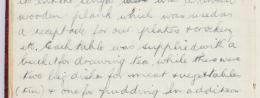 wooden plank which was used as
a receptacle for our plates & rockery
etc. Each table was supplied with a
bucket for drawing tea, while there were
two big dishes for meat & vegetables
(tin) & one for pudding in addition